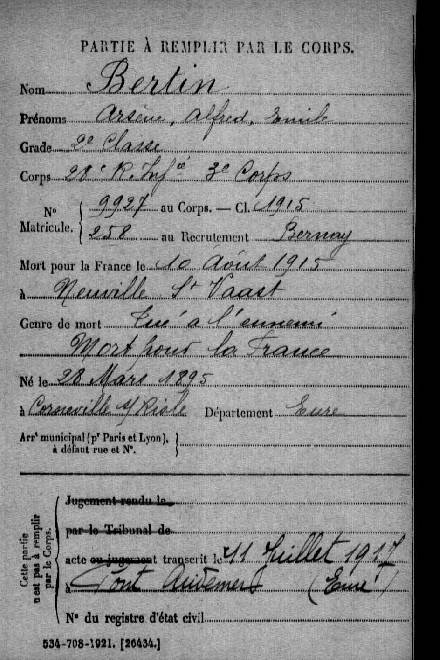 PARTIE À REMPLIR PAR LE CORPS.
Nom Bertin
Prénoms Arsène, Alfred, Emile
Grade 2e Classe
Corps 28e R. Infie 3e Corps
N° Matricule. { 9927 au Corps. — Cl. 1915
258 au Recrutement Bernay
Mort pour la France le 10 Août 1915
à Neuville St Vaast
Genre de mort Tué à l'ennemi
Mort pour la France
Né le 28 Mars 1895
à Corneville s/ Risle Département Eure
Arrt municipal (pr Paris et Lyon), à défaut rue et N°. }
Cette partie n'est pas à remplir par le Corps.
Jugement rendu le
par le Tribunal de
acte ou jugement transcrit le 11 Juillet 1917
à Pont Audemer (Eure)
N° du registre d'état civil
534-708-1921. [26434.]